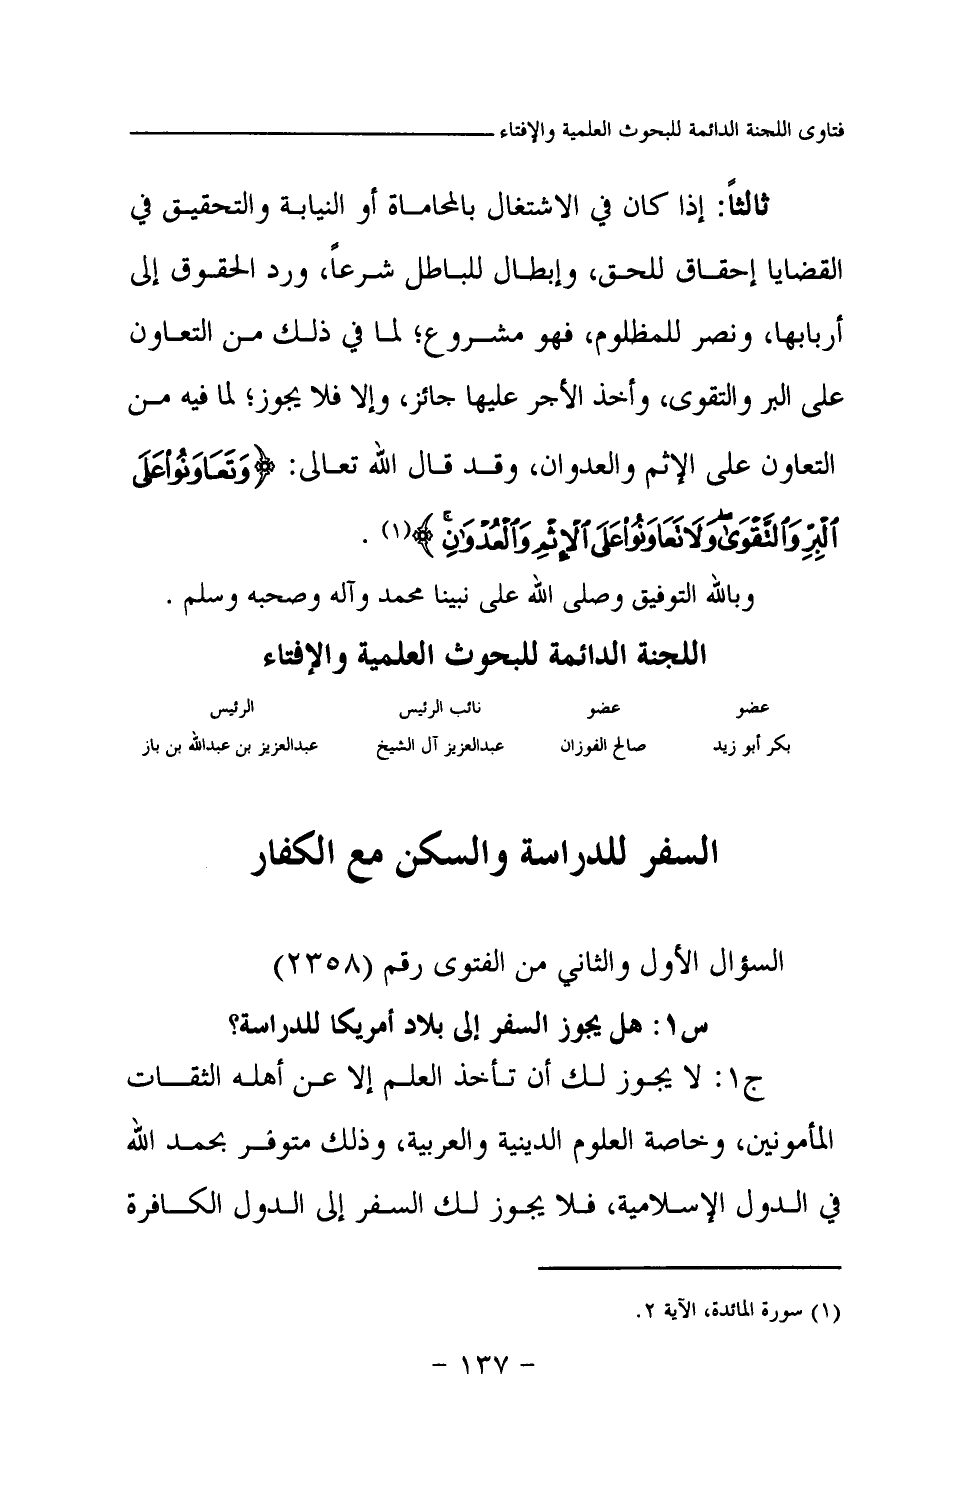 فتاوى اللجنة الدائمة للبحوث العلمية والإفتاء
ثالثاً: إذا كان في الاشتغال بالمحاماة أو النيابة والتحقيق في
القضايا إحقاق للحق، وإبطال للباطل شرعاً، ورد الحقوق إلى
أربابها، ونصر للمظلوم، فهو مشروع؛ لما في ذلك من التعاون
على البر والتقوى، وأخذ الأجر عليها جائز، وإلا فلا يجوز؛ لما فيه من
التعاون على الإثم والعدوان، وقد قال الله تعالى: ﴿وَتَعَاوَنُوا۟ عَلَى
ٱلْبِرِّ وَٱلتَّقْوَىٰ ۖ وَلَا تَعَاوَنُوا۟ عَلَى ٱلْإِثْمِ وَٱلْعُدْوَٰنِ ۚ﴾(١) .
وبالله التوفيق وصلى الله على نبينا محمد وآله وصحبه وسلم .
اللجنة الدائمة للبحوث العلمية والإفتاء
عضو عضو نائب الرئيس الرئيس
بكر أبو زيد صالح الفوزان عبدالعزيز آل الشيخ عبدالعزيز بن عبدالله بن باز
السفر للدراسة والسكن مع الكفار
السؤال الأول والثاني من الفتوى رقم (٢٣٥٨)
س١: هل يجوز السفر إلى بلاد أمريكا للدراسة؟
ج١: لا يجوز لك أن تأخذ العلم إلا عن أهله الثقات
المأمونين، وخاصة العلوم الدينية والعربية، وذلك متوفر بحمد الله
في الدول الإسلامية، فلا يجوز لك السفر إلى الدول الكافرة
(١) سورة المائدة، الآية ٢.
- ١٣٧ -